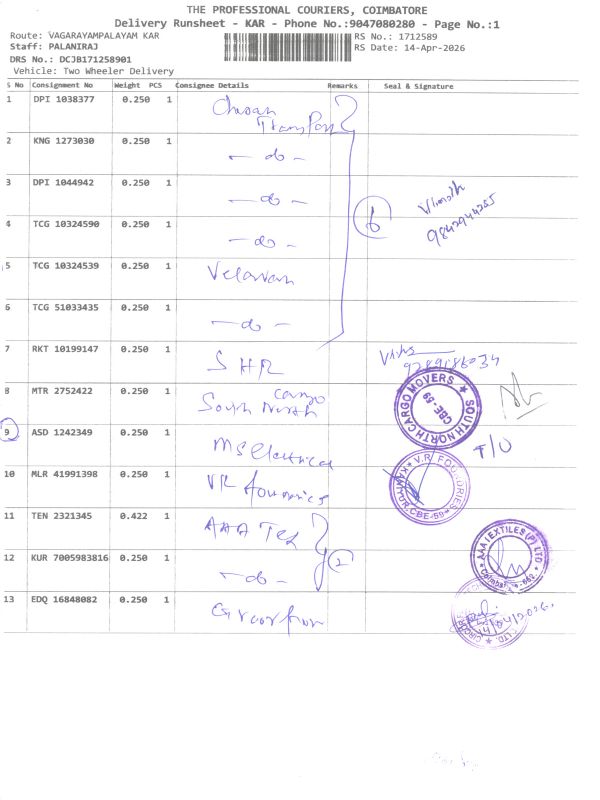 THE PROFESSIONAL COURIERS, COIMBATORE
Delivery Runsheet - KAR - Phone No.:9047080280 - Page No.:1
Route: VAGARAYAMPALAYAM KAR
RS No.: 1712589
Staff: PALANIRAJ
RS Date: 14-Apr-2026
DRS No.: DCJB171258901
Vehicle: Two Wheeler Delivery
S No Consignment No Weight PCS Consignee Details Remarks Seal & Signature
1 DPI 1038377 0.250 1
2 KNG 1273030 0.250 1 - do -
3 DPI 1044942 0.250 1 - do -
6
9842944255
4 TCG 10324590 0.250 1 - do -
5 TCG 10324539 0.250 1 Velavan
6 TCG 51033435 0.250 1 - do -
7 RKT 10199147 0.250 1 SHR
8 MTR 2752422 0.250 1 South North cargo
SOUTH NORTH CARGO MOVERS
CBE-59
9 ASD 1242349 0.250 1 MS electrical T/O
10 MLR 41991398 0.250 1 VR
V.R. FOUNDRIES
CBE-59
11 TEN 2321345 0.422 1 AAA Tex
AAA TEXTILES (P) LTD
12 KUR 7005983816 0.250 1 - do - 2
13 EDQ 16848082 0.250 1
14/04/2026